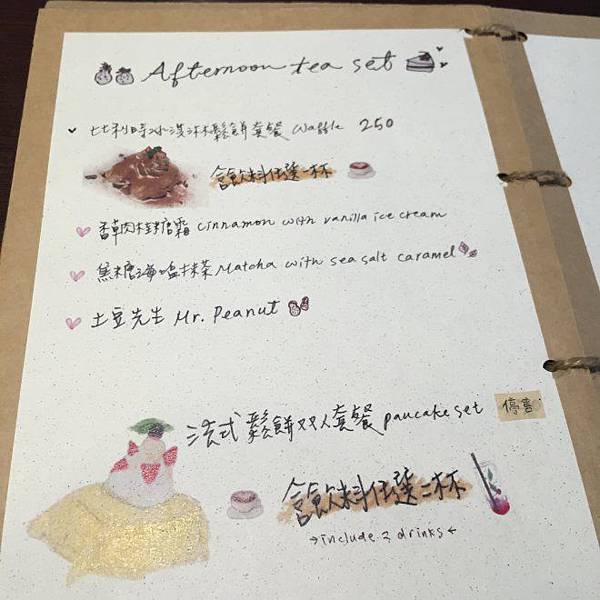 Afternoon tea set
比利時冰淇淋鬆餅套餐 Waffle 250
含飲料任選一杯
香草肉桂糖霜 Cinnamon with vanilla ice cream
焦糖海鹽抹茶 Matcha with sea salt caramel
土豆先生 Mr. Peanut
法式鬆餅双人套餐 pancake set 停售
含飲料任選二杯
→include 2 drinks←